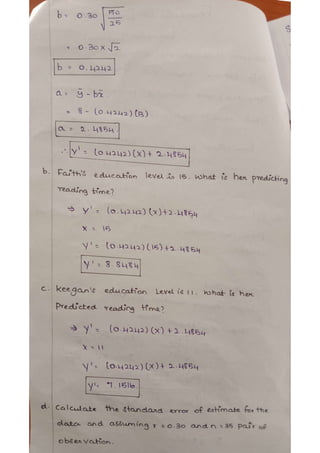 b = 0.30 √50/25
= 0.30 x √2
b = 0.4242
a = ȳ - bx̄
= 8 - (0.4242)(13)
a = 2.4854
∴ y' = (0.4242)(x) + 2.4854
b. Faith's education level is 15. What is her predicting
reading time?
⇒ y' = (0.4242)(x) + 2.4854
x = 15
y' = (0.4242)(15) + 2.4854
y' = 8.8484
c. keegan's education Level is 11. What is her
Predicted reading time?
⇒ y' = (0.4242)(x) + 2.4854
x = 11
y' = (0.4242)(x) + 2.4854
y' = 7.1516
d. Calculate the standard error of estimate for the
data and assuming r = 0.30 and n = 35 pair of
observation.